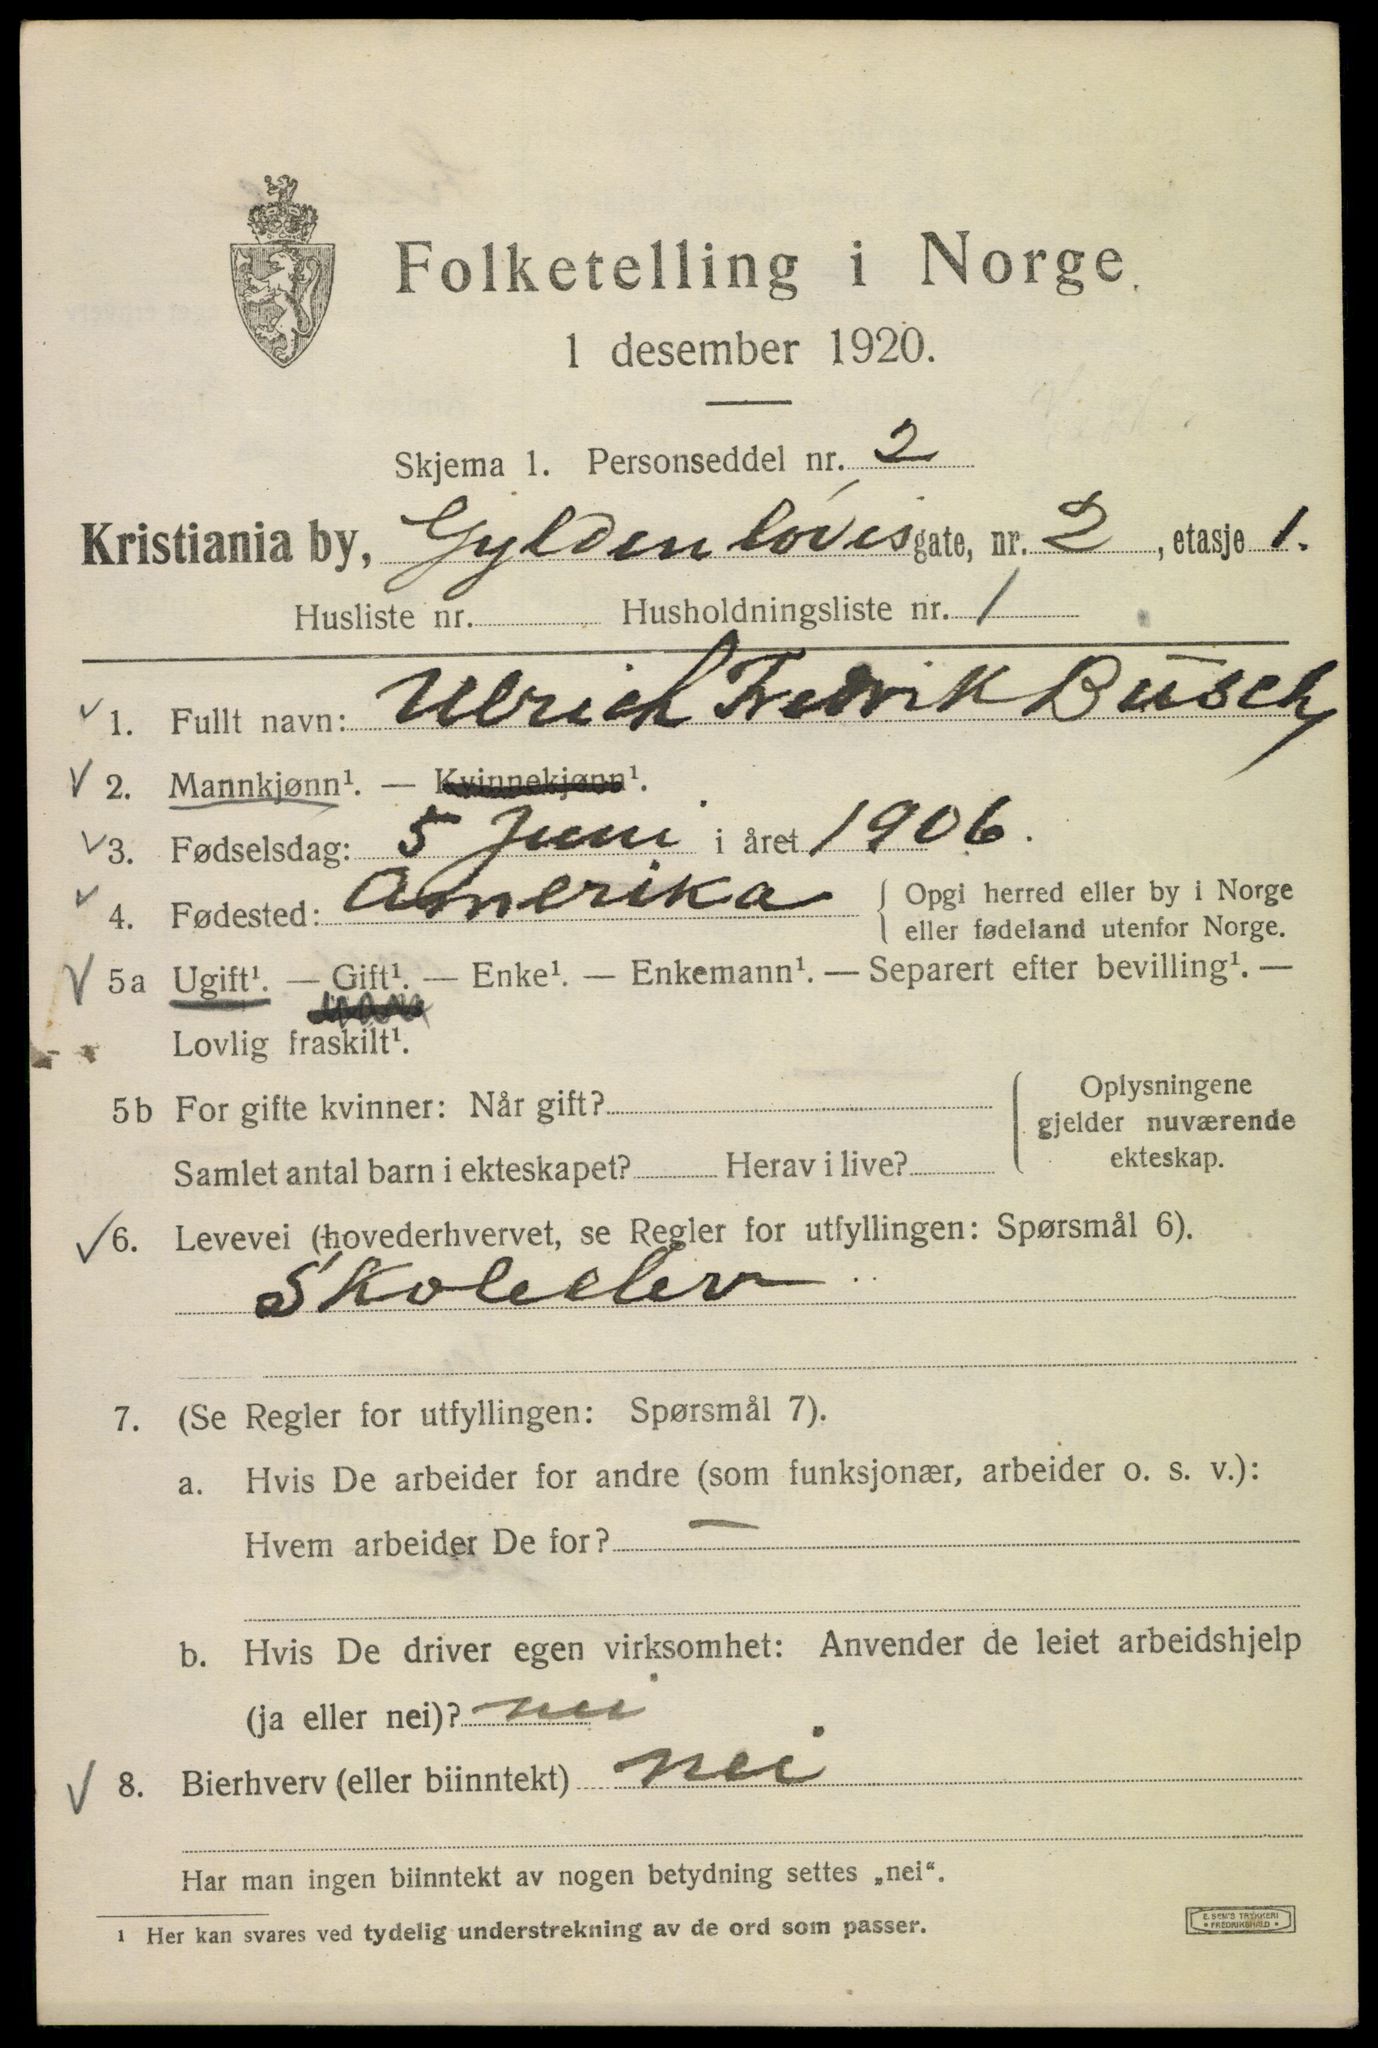 Folketelling i Norge
1 desember 1920.
Skjema 1. Personseddel nr. 2
Kristiania by, Gyldenløvesgate, nr. 2, etasje 1.
Husliste nr. Husholdningsliste nr. 1
1. Fullt navn: Ulrich Fredrik Busch
2. Mannkjønn¹. — Kvinnekjønn¹.
3. Fødselsdag: 5 Juni i året 1906.
4. Fødested: Amerika { Opgi herred eller by i Norge
eller fødeland utenfor Norge.
5a Ugift¹. — Gift¹. — Enke¹. — Enkemann¹. — Separert efter bevilling¹. —
Lovlig fraskilt¹.
5b For gifte kvinner: Når gift?
Samlet antal barn i ekteskapet? Herav i live?
Oplysningene
gjelder nuværende
ekteskap.
6. Levevei (hovederhvervet, se Regler for utfyllingen: Spørsmål 6).
Skoleelev
7. (Se Regler for utfyllingen: Spørsmål 7).
a. Hvis De arbeider for andre (som funksjonær, arbeider o. s. v.):
Hvem arbeider De for? —
b. Hvis De driver egen virksomhet: Anvender de leiet arbeidshjelp
(ja eller nei)? nei
8. Bierhverv (eller biinntekt) nei
Har man ingen biinntekt av nogen betydning settes „nei“.
¹ Her kan svares ved tydelig understrekning av de ord som passer.
E. SEM'S TRYKKERI
• FREDRIKSHALD •